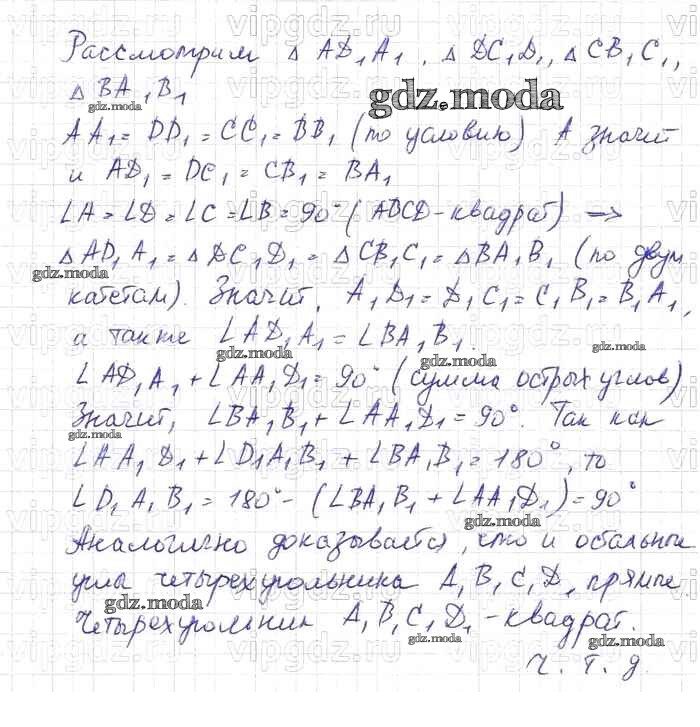 Рассмотрим △ AD₁A₁, △ DC₁D₁, △ CB₁C₁,
△ BA₁B₁
gdz.moda
gdz.moda
AA₁ = DD₁ = CC₁ = BB₁ (по условию) А значит
и AD₁ = DC₁ = CB₁ = BA₁
∠A = ∠D = ∠C = ∠B = 90° (ABCD - квадрат) ⇒
△ AD₁A₁ = △ DC₁D₁ = △ CB₁C₁ = △ BA₁B₁ (по двум
gdz.moda
катетам). Значит, A₁D₁ = D₁C₁ = C₁B₁ = B₁A₁,
а также ∠AD₁A₁ = ∠BA₁B₁.
gdz.moda
gdz.moda
∠AD₁A₁ + ∠AA₁D₁ = 90° (сумма острых углов)
Значит, ∠BA₁B₁ + ∠AA₁D₁ = 90°. Так как
gdz.moda
∠AA₁D₁ + ∠D₁A₁B₁ + ∠BA₁B₁ = 180°, то
∠D₁A₁B₁ = 180° - (∠BA₁B₁ + ∠AA₁D₁) = 90°
gdz.moda
Аналогично доказывается, что и остальные
угла четырехугольника A₁B₁C₁D₁ прямые
gdz.moda
Четырехугольник A₁B₁C₁D₁ - квадрат.
gdz.moda
gdz.moda
ч. т. д.